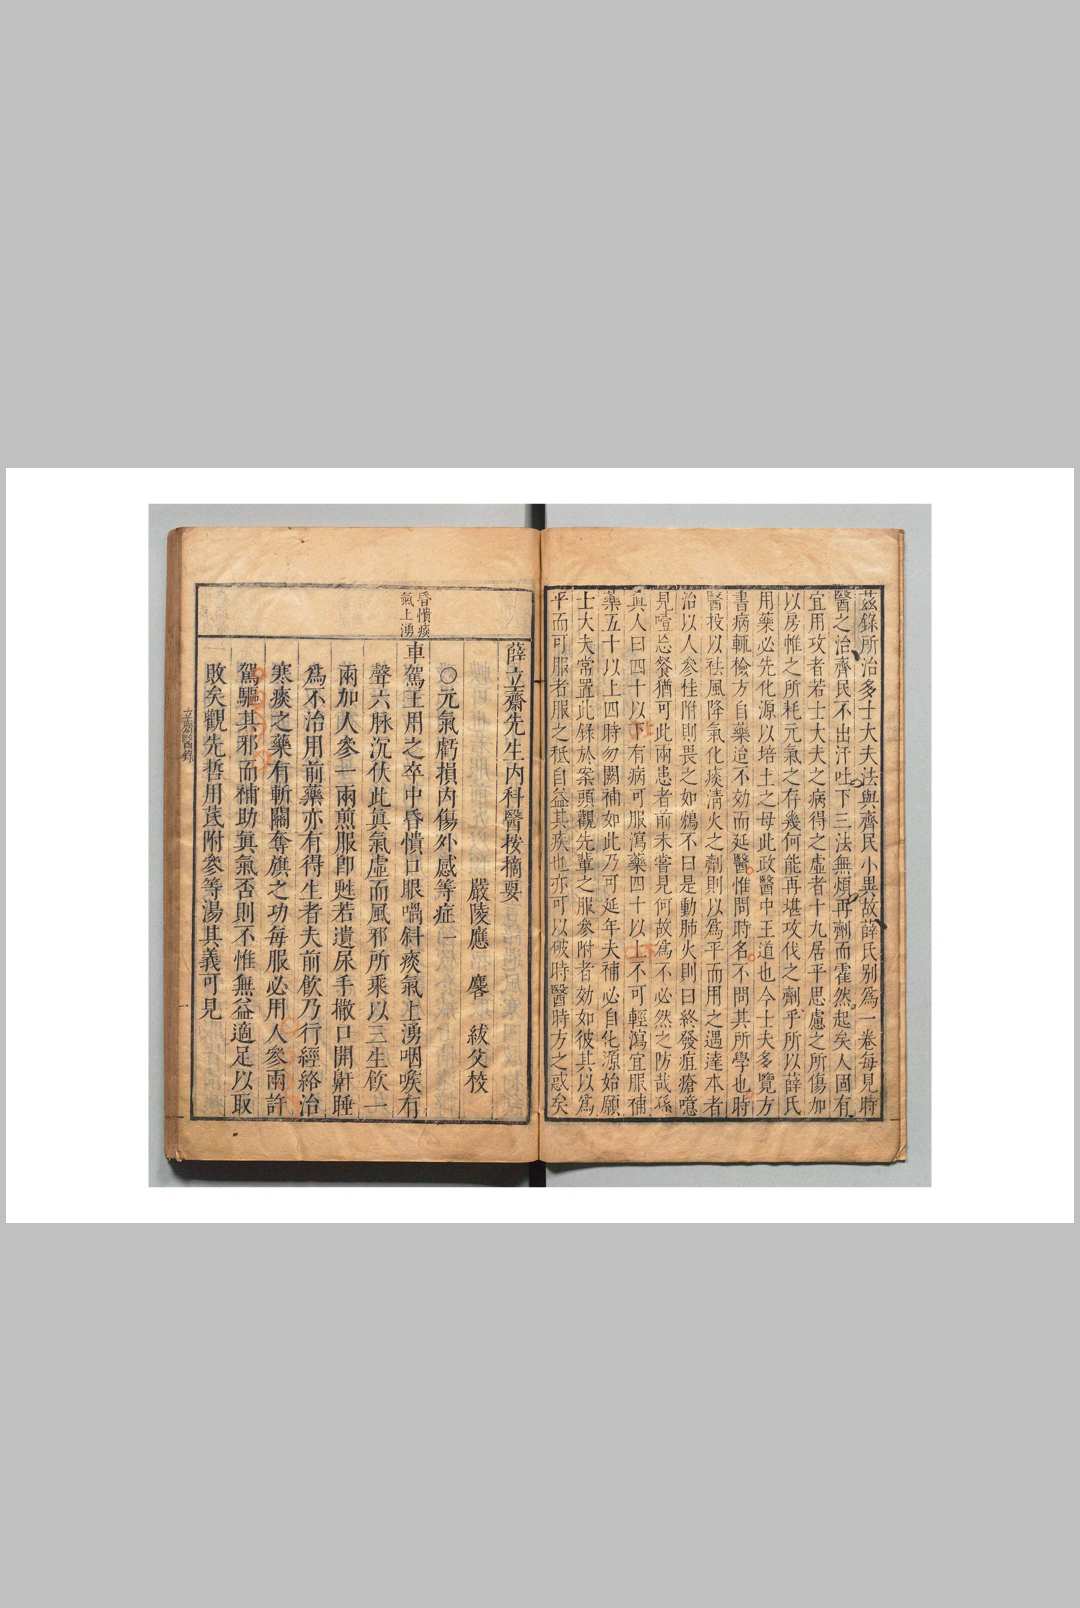 茲錄所治多士大夫法與齊民小異故薛氏別為一卷每見時
醫之治齊民不出汗吐下三法無煩再劑而霍然起矣人固有
宜用攻者若士大夫之病得之虛者十九居平思慮之所傷加
以房帷之所耗元氣之存幾何能再堪攻伐之劑乎所以薛氏
用藥必先化源以培土之母此政醫中王道也今士夫多覽方
書病輒檢方自藥迨不効而延醫惟問時名不問其所學也時
醫投以祛風降氣化痰清火之劑則以為平而用之遇達本者
治以人參佳附則畏之如鴆不曰是動肺火則曰終發疽瘡噫
見噎忘餐猶可此兩患者前未嘗見何故為不必然之防哉孫
眞人曰四十以下有病可服瀉藥四十以上不可輕瀉宜服補
藥五十以上四時勿闕補如此乃可延年夫補必自化源始願
士大夫常置此錄於案頭觀先輩之服參附者効如彼其以為
平而可服者服之秪自益其疾也亦可以破時醫時方之惑矣
薛立齋先生内科醫按摘要
嚴陵應 麐 紱爻校
○元氣虧損内傷外感等症一
昏憒痰
氣上湧
車駕王用之卒中昏憒口眼喎斜痰氣上湧咽喉有
聲六脉沉伏此眞氣虛而風邪所乘以三生飲一
兩加人參一兩煎服卽甦若遺尿手撒口開鼾睡
為不治用前藥亦有得生者夫前飲乃行經絡治
寒痰之藥有斬關奪旗之功每服必用人參兩許
駕驅其邪而補助眞氣否則不惟無益適足以取
敗矣觀先哲用芪附參等湯其義可見
立齋醫錄
一